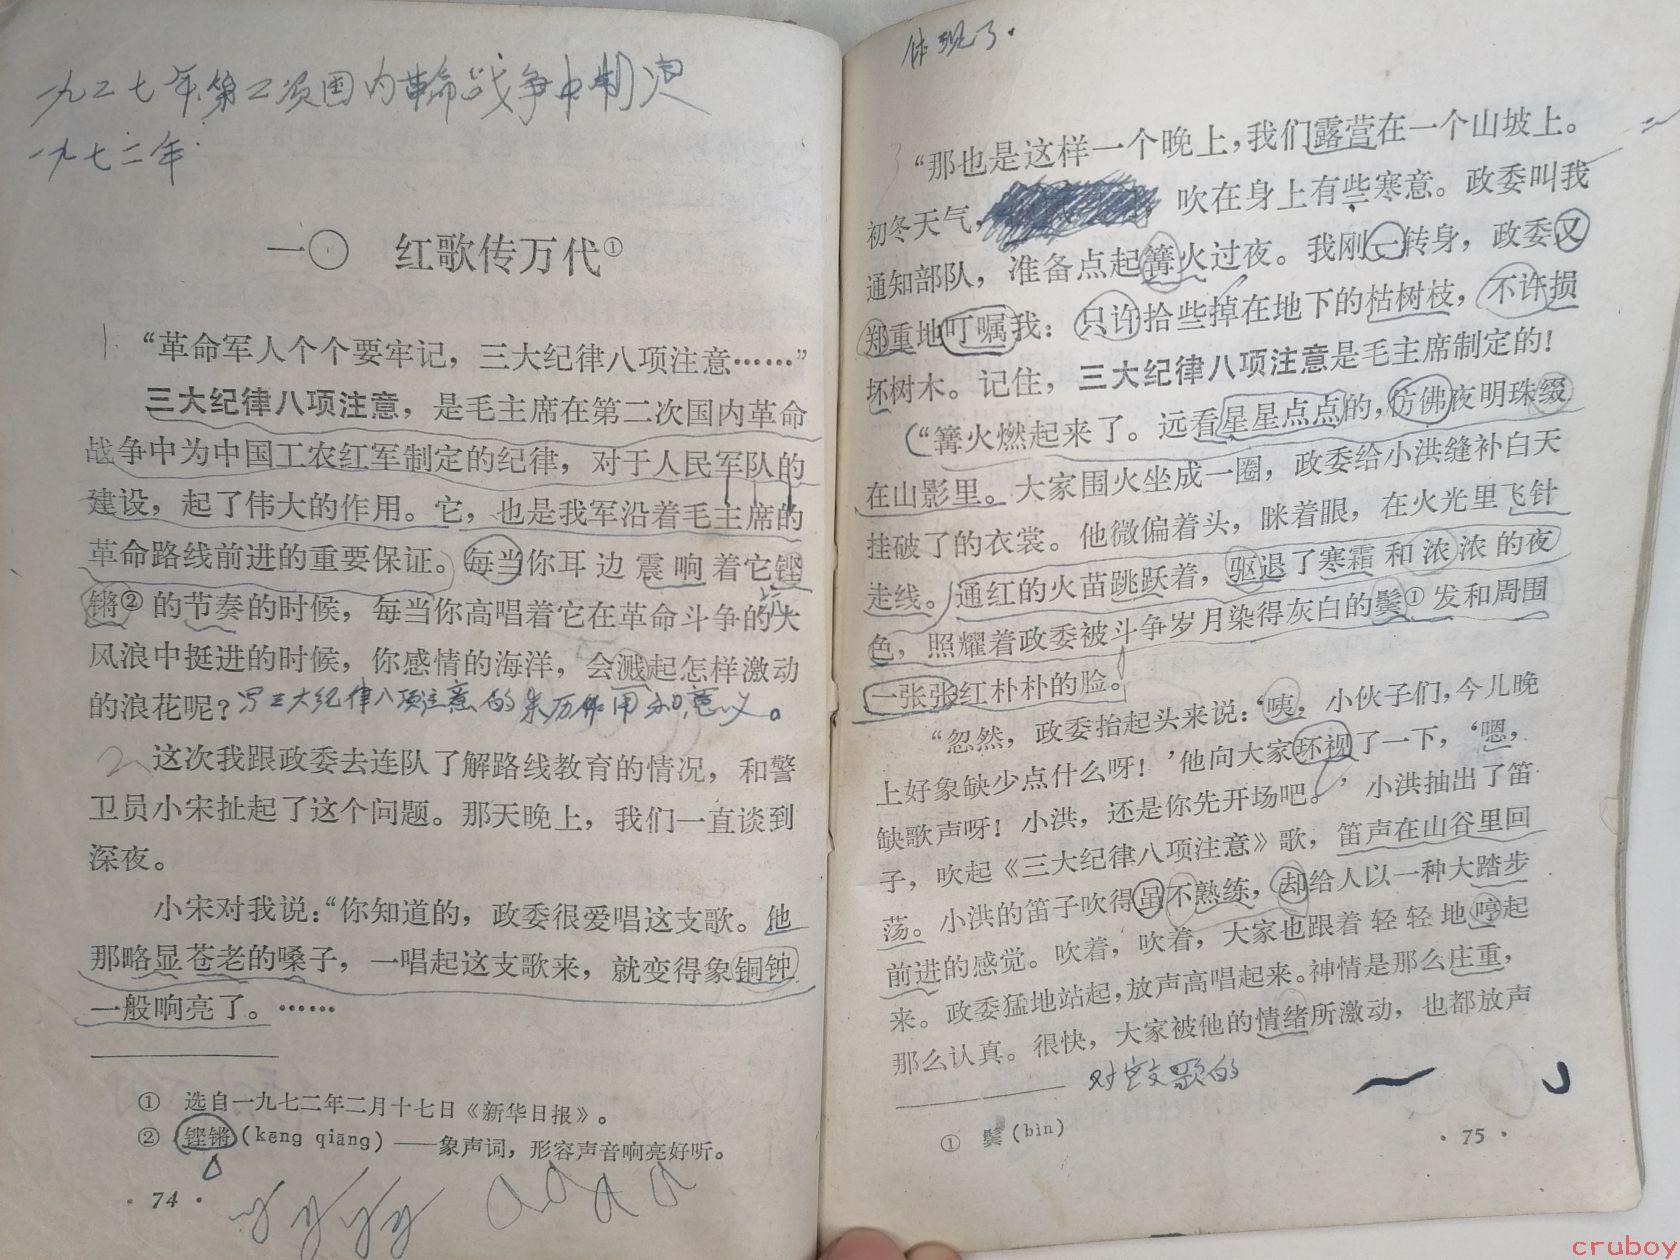 一九二七年第二次国内革命战争中制定
一九七二年
一〇 红歌传万代①
“革命军人个个要牢记，三大纪律八项注意……”
三大纪律八项注意，是毛主席在第二次国内革命
战争中为中国工农红军制定的纪律，对于人民军队的
建设，起了伟大的作用。它，也是我军沿着毛主席的
革命路线前进的重要保证。每当你耳边震响着它铿
锵②的节奏的时候，每当你高唱着它在革命斗争的大
风浪中挺进的时候，你感情的海洋，会溅起怎样激动
的浪花呢？
写三大纪律八项注意的来历作用和意义。
2 这次我跟政委去连队了解路线教育的情况，和警
卫员小宋扯起了这个问题。那天晚上，我们一直谈到
深夜。
小宋对我说：“你知道的，政委很爱唱这支歌。他
那略显苍老的嗓子，一唱起这支歌来，就变得象铜钟
一般响亮了。……
① 选自一九七二年二月十七日《新华日报》。
② 铿锵(kēng qiāng)——象声词，形容声音响亮好听。
· 74 ·
体现了.
“那也是这样一个晚上，我们露营在一个山坡上。
初冬天气，吹在身上有些寒意。政委叫我
通知部队，准备点起篝火过夜。我刚一转身，政委又
郑重地叮嘱我：只许拾些掉在地下的枯树枝，不许损
坏树木。记住，三大纪律八项注意是毛主席制定的！
“篝火燃起来了。远看星星点点的，仿佛夜明珠缀
在山影里。大家围火坐成一圈，政委给小洪缝补白天
挂破了的衣裳。他微偏着头，眯着眼，在火光里飞针
走线。通红的火苗跳跃着，驱退了寒霜和浓浓的夜
色，照耀着政委被斗争岁月染得灰白的鬓①发和周围
一张张红朴朴的脸。
“忽然，政委抬起头来说：‘咦，小伙子们，今儿晚
上好象缺少点什么呀！’他向大家环视了一下，‘嗯，
缺歌声呀！小洪，还是你先开场吧。’小洪抽出了笛
子，吹起《三大纪律八项注意》歌，笛声在山谷里回
荡。小洪的笛子吹得虽不熟练，却给人以一种大踏步
前进的感觉。吹着，吹着，大家也跟着轻轻地哼起
来。政委猛地站起，放声高唱起来。神情是那么庄重，
那么认真。很快，大家被他的情绪所激动，也都放声
对这支歌的
① 鬓(bìn)
· 75 ·
cruboy